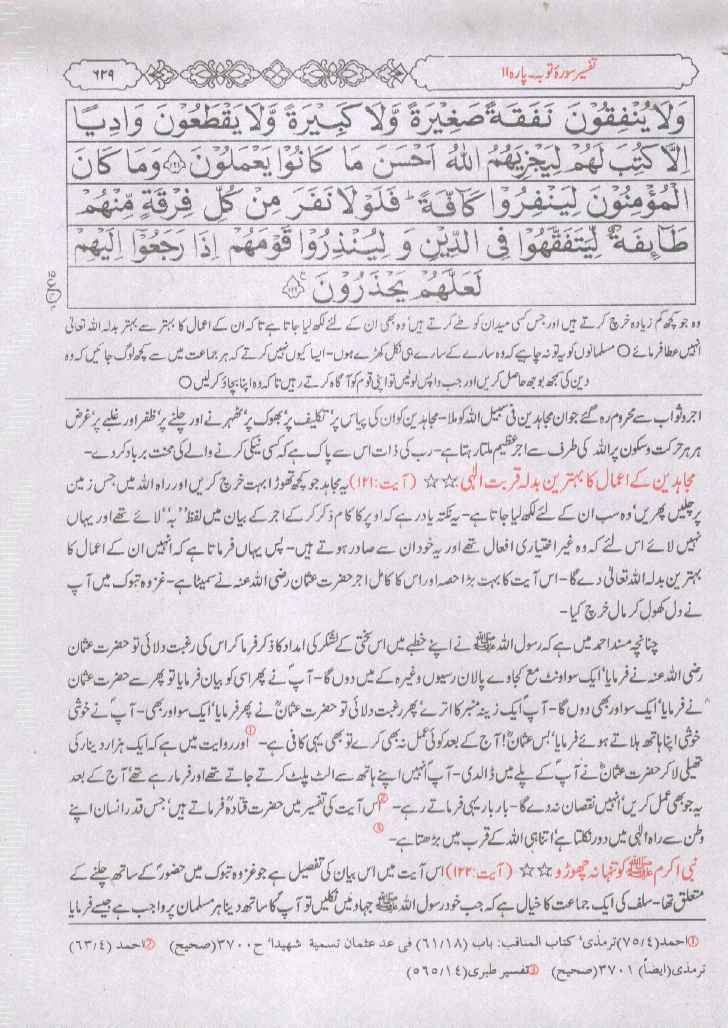 تفسیر سورۂ توبہ۔ پارہ ۱۱
۶۲۹
وَلَا یُنْفِقُوْنَ نَفَقَةً صَغِیْرَةً وَّلَا کَبِیْرَةً وَّلَا یَقْطَعُوْنَ وَادِیًا
اِلَّا کُتِبَ لَهُمْ لِیَجْزِیَهُمُ اللّٰهُ اَحْسَنَ مَا کَانُوْا یَعْمَلُوْنَ ﴿۱۲۱﴾ وَمَا کَانَ
الْمُؤْمِنُوْنَ لِیَنْفِرُوْا کَآفَّةً ؕ فَلَوْلَا نَفَرَ مِنْ کُلِّ فِرْقَةٍ مِّنْهُمْ
طَآىِٕفَةٌ لِّیَتَفَقَّهُوْا فِی الدِّیْنِ وَ لِیُنْذِرُوْا قَوْمَهُمْ اِذَا رَجَعُوْۤا اِلَیْهِمْ
لَعَلَّهُمْ یَحْذَرُوْنَ ﴿۱۲۲﴾
وہ جو کچھ کم زیادہ خرچ کرتے ہیں اور جس کسی میدان کو طے کرتے ہیں' وہ بھی ان کے لئے لکھ لیا جاتا ہے تا کہ ان کے اعمال کا بہتر سے بہتر بدلہ اللہ تعالیٰ
انہیں عطا فرمائے ○ مسلمانوں کو یہ تو نہ چاہیے کہ وہ سارے کے سارے ہی نکل کھڑے ہوں- ایسا کیوں نہیں کرتے کہ ہر جماعت میں سے کچھ لوگ جائیں کہ وہ
دین کی سمجھ بوجھ حاصل کریں اور جب واپس لوٹیں تو اپنی قوم کو آگاہ کرتے رہیں تا کہ وہ اپنا بچاؤ کر لیں ○
اجر و ثواب سے محروم رہ گئے جو ان مجاہدین فی سبیل اللہ کو ملا- مجاہدین کو ان کی پیاس پر' تکلیف پر' بھوک پر' ٹھہرنے اور چلنے پر' ظفر اور غلبے پر' غرض
ہر ہر حرکت و سکون پر اللہ کی طرف سے اجر عظیم ملتا رہتا ہے- رب کی ذات اس سے پاک ہے کہ کسی نیکی کرنے والے کی محنت برباد کر دے-
مجاہدین کے اعمال کا بہترین بدلہ قربت الٰہی ☆☆ (آیت:۱۲۱) یہ مجاہد جو کچھ تھوڑا بہت خرچ کریں اور راہ اللہ میں جس زمین
پر چلیں پھریں' وہ سب ان کے لئے لکھ لیا جاتا ہے- یہ نکتہ یاد رہے کہ اوپر کا کام ذکر کر کے اجر کے بیان میں لفظ "بہ" لائے تھے اور یہاں
نہیں لائے اس لئے کہ وہ غیر اختیاری افعال تھے اور یہ خود ان سے صادر ہوتے ہیں- پس یہاں فرماتا ہے کہ انہیں ان کے اعمال کا
بہترین بدلہ اللہ تعالیٰ دے گا- اس آیت کا بہت بڑا حصہ اور اس کا کامل اجر حضرت عثمان رضی اللہ عنہ نے سمیٹا ہے- غزوہ تبوک میں آپ
نے دل کھول کر مال خرچ کیا-
چنانچہ مسند احمد میں ہے کہ رسول اللہ ﷺ نے اپنے خطبے میں اس سختی کے لشکر کی امداد کا ذکر فرما کر اس کی رغبت دلائی تو حضرت عثمان
رضی اللہ عنہ نے فرمایا' ایک سو اونٹ مع کجاوے پالان رسیوں وغیرہ کے میں دوں گا- آپؐ نے پھر اسی کو بیان فرمایا تو پھر سے حضرت عثمان
نے فرمایا' ایک سو اور بھی دوں گا- آپؐ ایک زینہ منبر کا اترے' پھر رغبت دلائی تو حضرت عثمانؓ نے پھر فرمایا' ایک سو اور بھی- آپؐ نے خوشی
خوشی اپنا ہاتھ ہلاتے ہوئے فرمایا' بس عثمانؓ! آج کے بعد کوئی عمل نہ بھی کرے تو بھی یہی کافی ہے- ① اور روایت میں ہے کہ ایک ہزار دینار کی
تھیلی لا کر حضرت عثمانؓ نے آپؐ کے پلے میں ڈال دی- آپؐ انہیں اپنے ہاتھ سے الٹ پلٹ کرتے جاتے تھے اور فرما رہے تھے آج کے بعد
یہ جو بھی عمل کریں' انہیں نقصان نہ دے گا- بار بار یہی فرماتے رہے- ② اس آیت کی تفسیر میں حضرت قتادہؒ فرماتے ہیں' جس قدر انسان اپنے
وطن سے راہ الٰہی میں دور نکلتا ہے' اتنا ہی اللہ کے قرب میں بڑھتا ہے- ③
نبی اکرم ﷺ کو تنہا نہ چھوڑو ☆☆ (آیت:۱۲۲) اس آیت میں اس بیان کی تفصیل ہے جو غزوہ تبوک میں حضورؐ کے ساتھ چلنے کے
متعلق تھا- سلف کی ایک جماعت کا خیال ہے کہ جب خود رسول اللہ ﷺ جہاد میں نکلیں تو آپؐ کا ساتھ دینا ہر مسلمان پر واجب ہے جیسے فرمایا
①احمد(۷۵/۴)ترمذی' کتاب المناقب: باب (۶۱/۱۸) فی عد عثمان تسمیة شهیدا' ح۳۷۰۰(صحیح) ②احمد (۶۳/۴)
ترمذی(ایضاً) ۳۷۰۱(صحیح) ③تفسیر طبری(۵۶۵/۱۴)